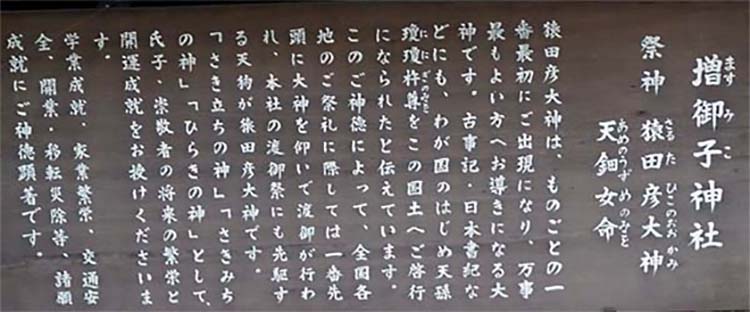 増御子神社
ますみこ
祭神　猿田彦大神
さるたひこのおおかみ
天鈿女命
あめのうずめのみこと
猿田彦大神は、ものごとの一
番最初にご出現になり、万事
最もよい方へお導きになる大
神です。古事記・日本書紀な
どにも、わが国のはじめ天孫
瓊瓊杵尊をこの国土へご啓行
ににぎのみこと
になられたと伝えています。
このご神徳によって、全国各
地のご祭礼に際しては一番先
頭に大神を仰いで渡御が行わ
れ、本社の渡御祭にも先駆す
る天狗が猿田彦大神です。
「さき立ちの神」「さきみち
の神」「ひらきの神」として、
氏子、崇敬者の将来の繁栄と
開運成就をお授けくださいま
す。
学業成就、家業繁栄、交通安
全、開業・移転災除等、諸願
成就にご神徳顕著です。